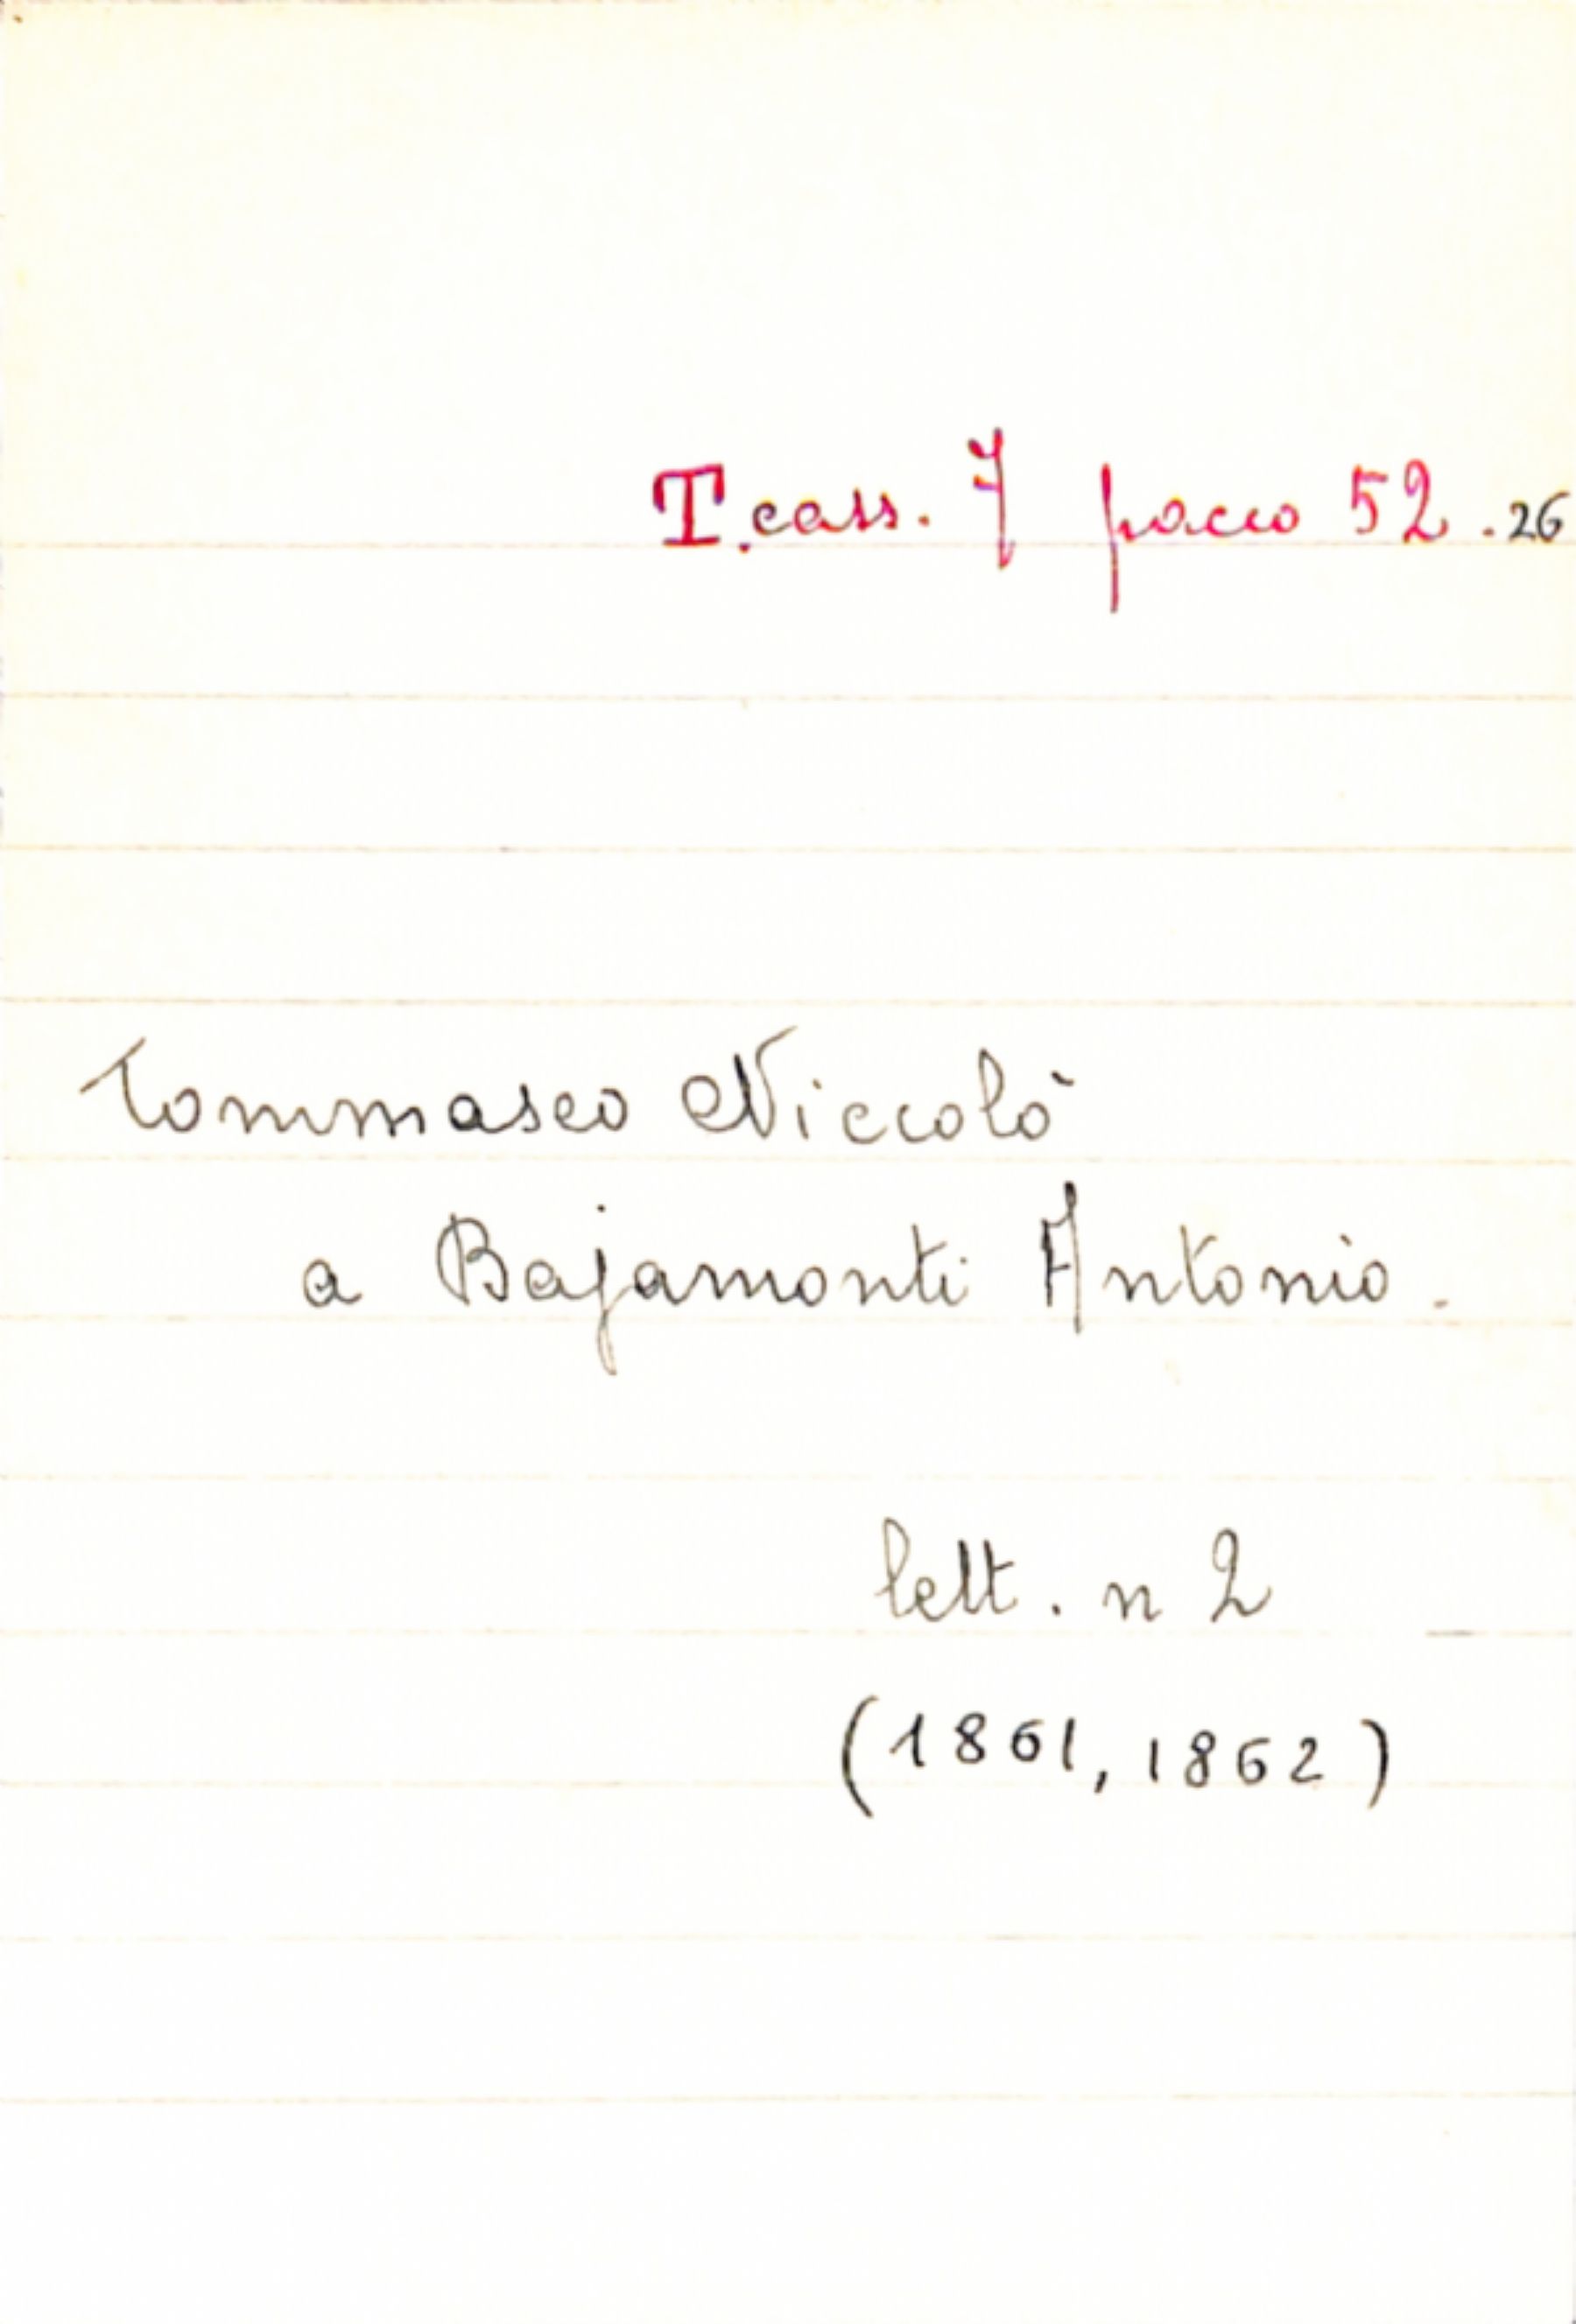 T. cass. 7 pacco 52.26
Tommaseo Niccolò
a Bajamonti Antonio.
lett. n 2
(1861, 1862)